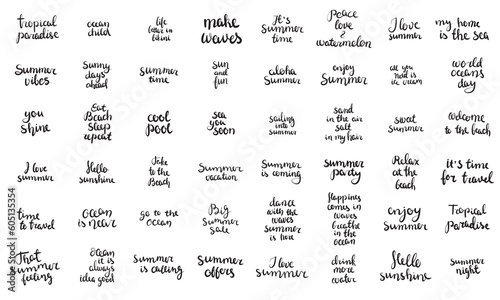 tropical
paradise
ocean
child
life
better in
bikini
make
waves
It's
Summer
time
Peace
love &
watermelon
I love
summer
my home
is the sea
Summer
vibes
Sunny
days
ahead
summer
time
sun
and
fun
aloha
summer
enjoy
Summer
all you
need is
ice cream
world
oceans
day
you
shine
Eat
Beach
Sleep
repeat
cool
pool
sea
you
soon
sailing
into
summer
sand
in the air
salt
in my hair
sweet
summer
welcome
to the beach
I love
summer
Hello
sunshine
Take
to the
Beach
Summer
vacation
Summer
is coming
summer
party
Relax
at the
beach
it's time
for travel
time
to travel
ocean
is near
go to the
ocean
Big
Summer
sale
dance
with the
waves
Summer
is here
Happiness
comes in
waves
breathe
in the
ocean
enjoy
summer
Tropical
Paradise
That
summer
feeling
ocean
it is
always
idea good
summer
is calling
summer
offers
I love
Summer
drink
more
water
Hello
sunshine
summer
night
Adobe Stock | #605135354